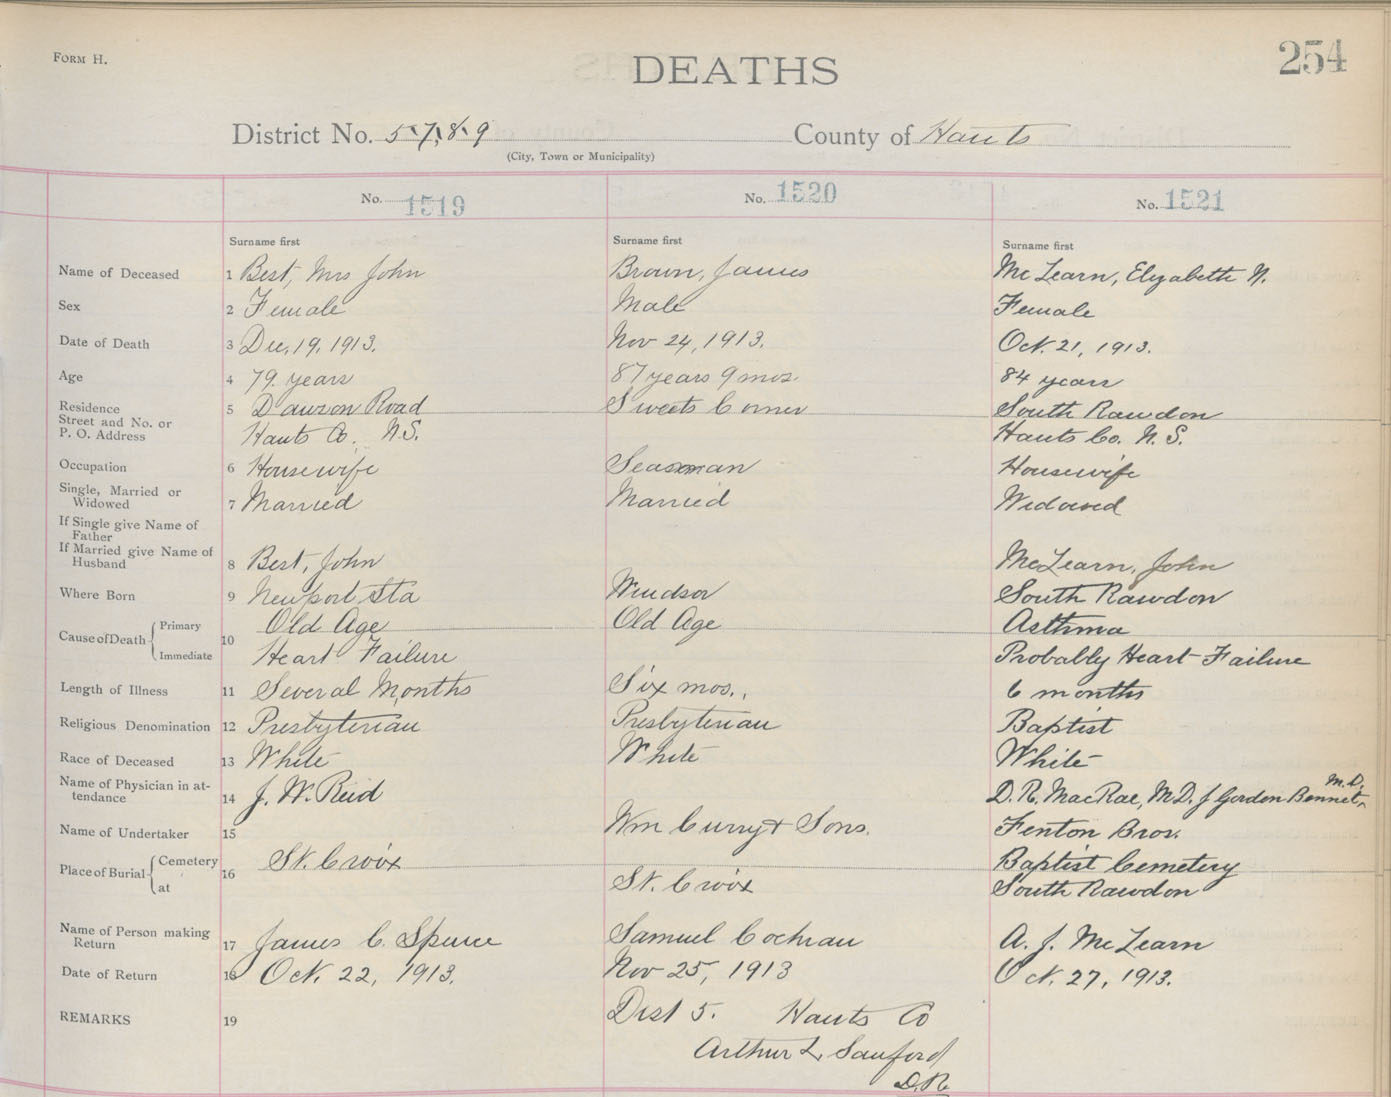 FORM H.
DEATHS
254
District No. 5, 7, 8, 9 County of Hants
(City, Town or Municipality)
No. 1519 No. 1520 No. 1521
Surname first Surname first Surname first
Name of Deceased 1 Best, Mrs John Brown, James McLearn, Elizabeth N.
Sex 2 Female Male Female
Date of Death 3 Dec. 19, 1913. Nov 24, 1913. Oct. 21, 1913.
Age 4 79 years 87 years 9 mos. 84 years
Residence 5 Dawson Road Sweets Corner South Rawdon
Street and No. or
P. O. Address Hants Co. N.S. Hants Co. N.S.
Occupation 6 Housewife Seaman Housewife
Single, Married or
Widowed 7 Married Married Widowed
If Single give Name of
Father
If Married give Name of
Husband 8 Best, John McLearn, John
Where Born 9 Newport Sta Windsor South Rawdon
Cause of Death Primary 10 Old Age Old Age Asthma
Immediate Heart Failure Probably Heart Failure
Length of Illness 11 Several Months Six mos., 6 months
Religious Denomination 12 Presbyterian Presbyterian Baptist
Race of Deceased 13 White White White
Name of Physician in at-
tendance 14 J. W. Reid D. R. MacRae, M.D. J Gordon Bennet, M.D.
Name of Undertaker 15 Wm Curry & Sons. Fenton Bros.
Place of Burial Cemetery 16 St. Croix Baptist Cemetery
at St. Croix South Rawdon
Name of Person making
Return 17 James C. Spence Samuel Cochran A. J. McLearn
Date of Return 18 Oct. 22, 1913. Nov 25, 1913 Oct. 27, 1913.
REMARKS 19 Dist 5. Hants Co
Arthur L. Sanford
D.R.